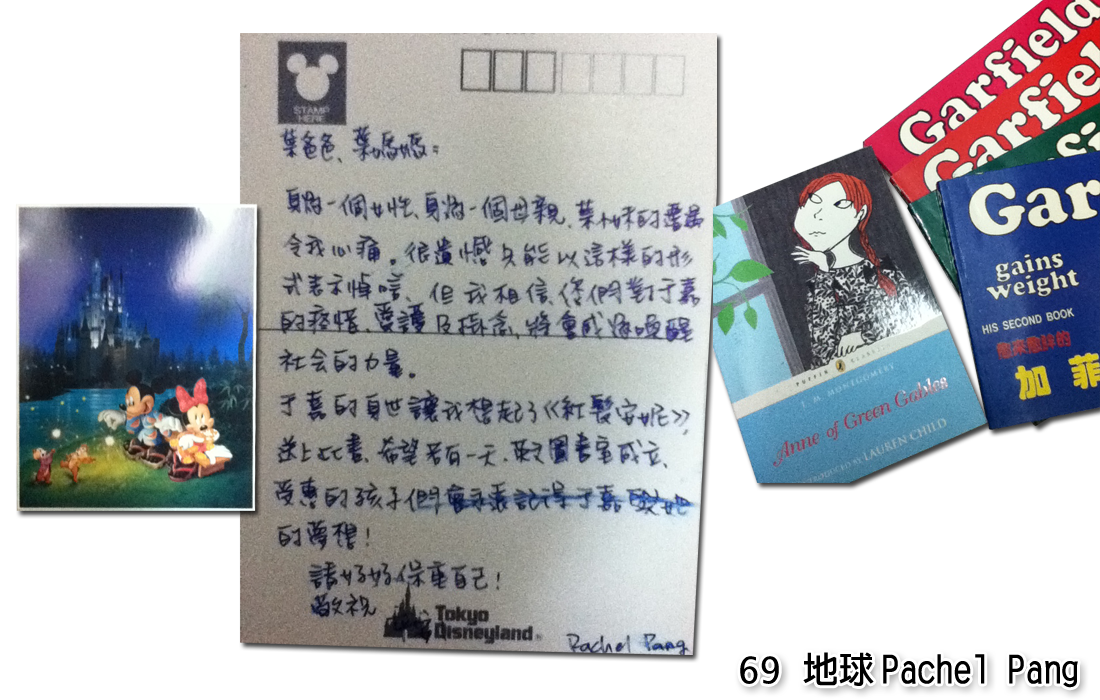 STAMP
HERE
葉爸爸、葉媽媽：
身為一個女性、身為一個母親、葉小妹的遭遇
令我心痛。很遺憾只能以這樣的形
式表示悼唁。但我相信、您們對于嘉
的疼惜、愛護及掛念、將會成為喚醒
社会的力量。
于嘉的身世讓我想起了《紅髮安妮》，
送上此書、希望若有一天、英文圖書室成立、
受惠的孩子們會永遠記得于嘉
的夢想！
請好好保重自己！
敬祝
Tokyo
Disneyland
Rachel Pang
Garfield
Garfield
Gar
gains
weight
HIS SECOND BOOK
加菲
PUFFIN CLASSICS
L. M. MONTGOMERY
Anne of Green Gables
INTRODUCED BY LAUREN CHILD
69 地球Pachel Pang